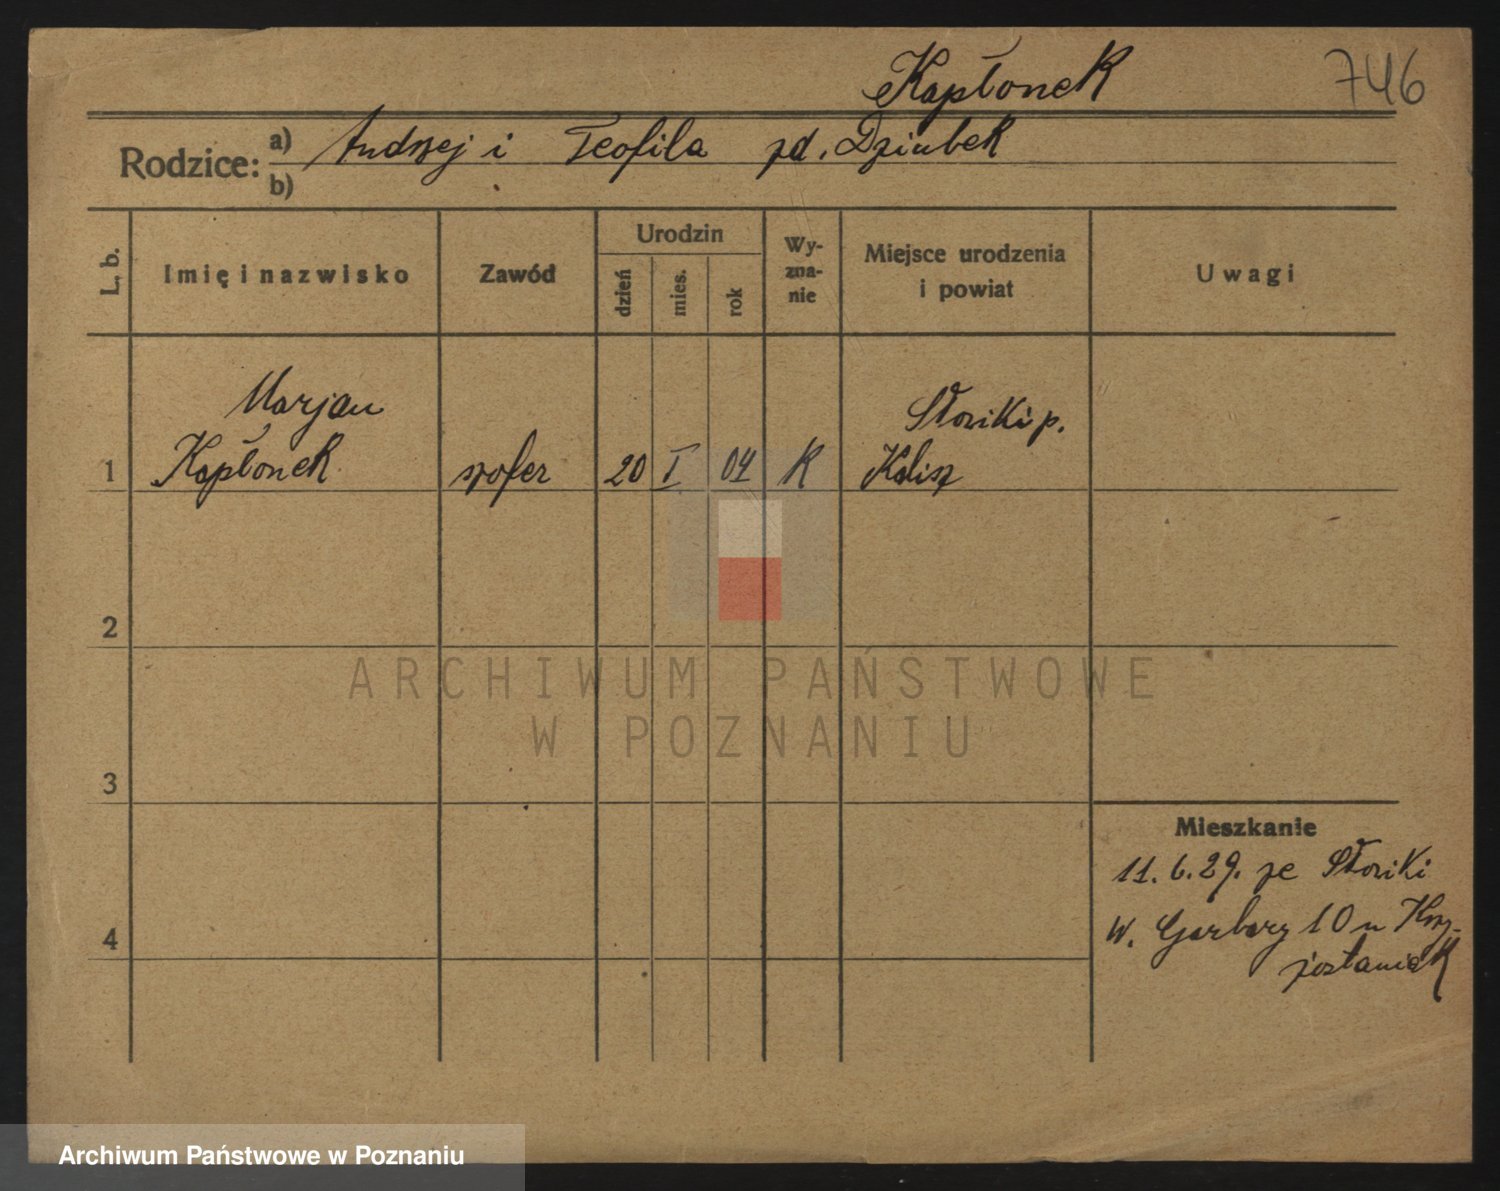 Kapłonek 746
Rodzice: a) Andrzej i Teofila zd. Dziubek
b)
L. b. Imię i nazwisko Zawód Urodzin dzień mies. rok Wy-zna-nie Miejsce urodzenia i powiat Uwagi
Marjan Słowiki p.
1 Kapłonek szofer 20 I 04 K Kalisz
2
ARCHIWUM PAŃSTWOWE
W POZNANIU
3
Mieszkanie
11.6.29. ze Słowiki
4 W. Garbary 10 u
Archiwum Państwowe w Poznaniu